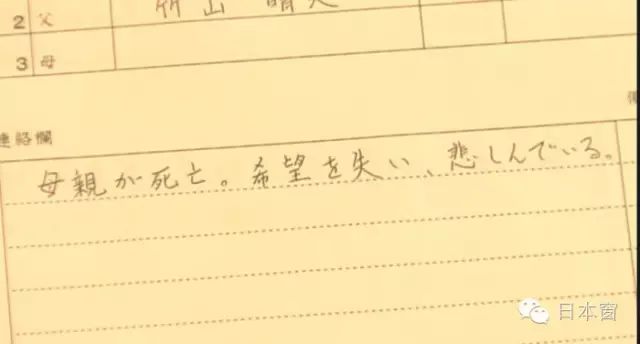 2 父 竹山
3 母
連絡欄
母親が死亡。希望を失い、悲しんでいる。
日本窗